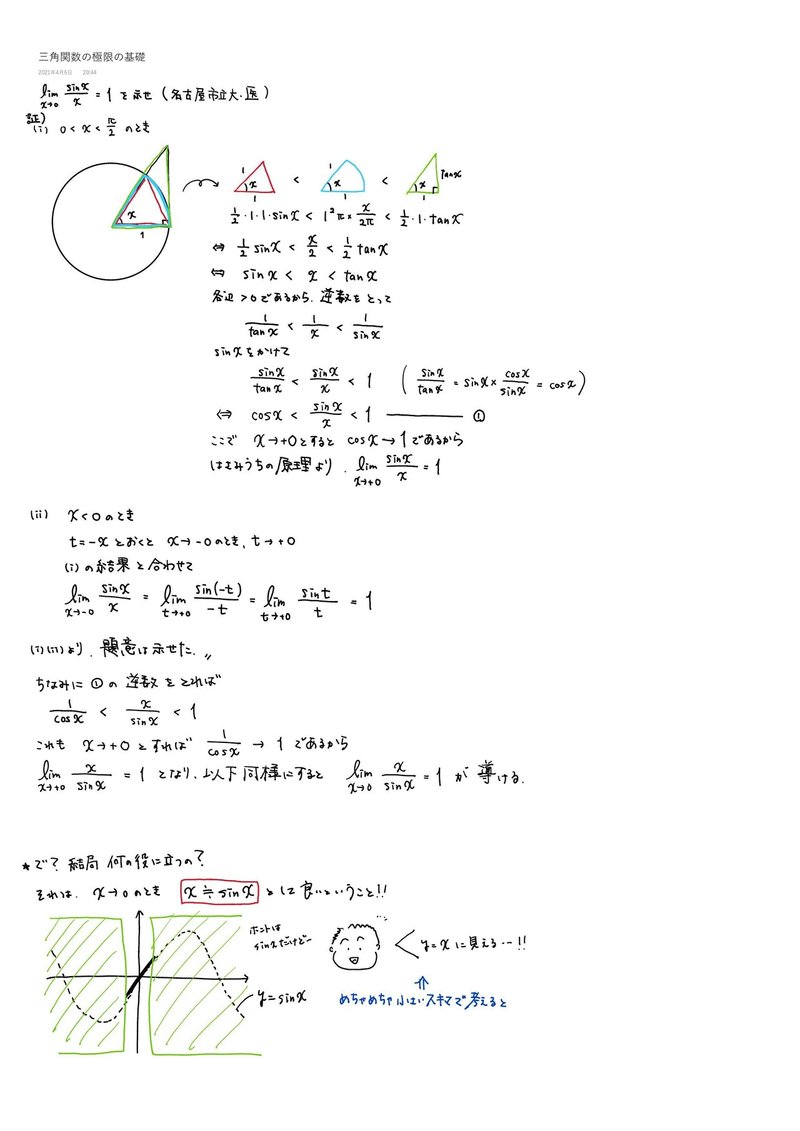 三角関数の極限の基礎
2021年4月5日 20:44
lim x→0 sinx/x = 1 を示せ (名古屋市立大・医)
証)
(i) 0 < x < π/2 のとき
x
1
1 x 1 < 1 x 1 < x 1 tanx
1/2・1・1・sinx < 1²π × x/2π < 1/2・1・tanx
⇔ 1/2 sinx < x/2 < 1/2 tanx
⇔ sinx < x < tanx
各辺 >0 であるから、逆数をとって
1/tanx < 1/x < 1/sinx
sinxをかけて
sinx/tanx < sinx/x < 1 (sinx/tanx = sinx × cosx/sinx = cosx)
⇔ cosx < sinx/x < 1 ――― ①
ここで x→+0 とすると cosx→1 であるから
はさみうちの原理より、lim x→+0 sinx/x = 1
(ii) x<0 のとき
t=-x とおくと x→-0 のとき、t→+0
(i) の結果と合わせて
lim x→-0 sinx/x = lim t→+0 sin(-t)/-t = lim t→+0 sint/t = 1
(i)(ii)より、題意は示せた.〃
ちなみに ① の逆数をとれば
1/cosx < x/sinx < 1
これも x→+0 とすれば 1/cosx → 1 であるから
lim x→+0 x/sinx = 1 となり、以下同様にすると lim x→0 x/sinx = 1 が導ける.
★で? 結局何の役に立つの?
それは、x→0 のとき x≒sinx として良いということ!!
ホントは
sinxだけど〜
y=x に見える…!!
y=sinx
⇑
めちゃめちゃ小さいスキマで考えると